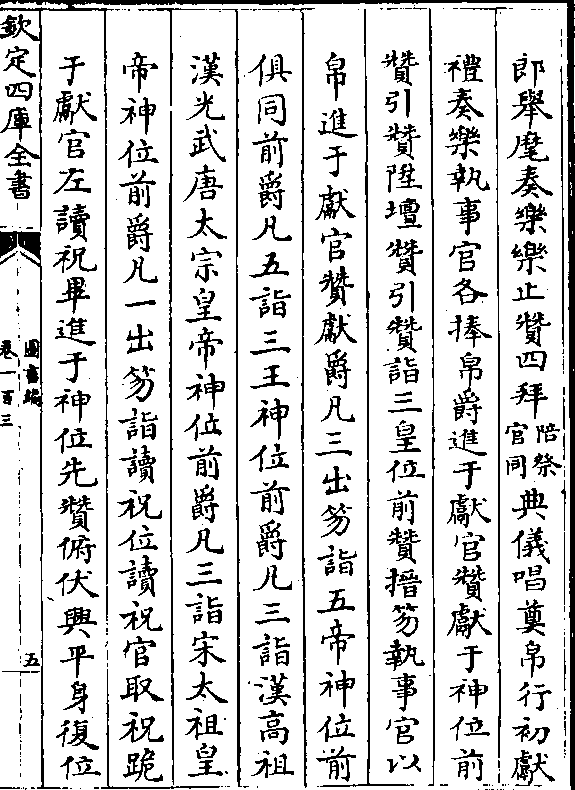 郎舉麾奏樂樂止贊四拜陪祭官同典儀唱奠帛行初獻
禮奏樂執事官各捧帛爵進于獻官贊獻于神位前
贊引贊陞壇贊引贊詣三皇位前贊搢笏執事官以
帛進于獻官贊獻爵凡三出笏詣五帝神位前
俱同前爵凡五詣三王神位前爵凡三詣漢高祖
漢光武唐太宗皇帝神位前爵凡三詣宋太祖皇
帝神位前爵凡一出笏詣讀祝位讀祝官取祝跪
于獻官左讀祝畢進于神位先贊俯伏興平身復位
欽定四庫全書
圖書編
卷一百三
五